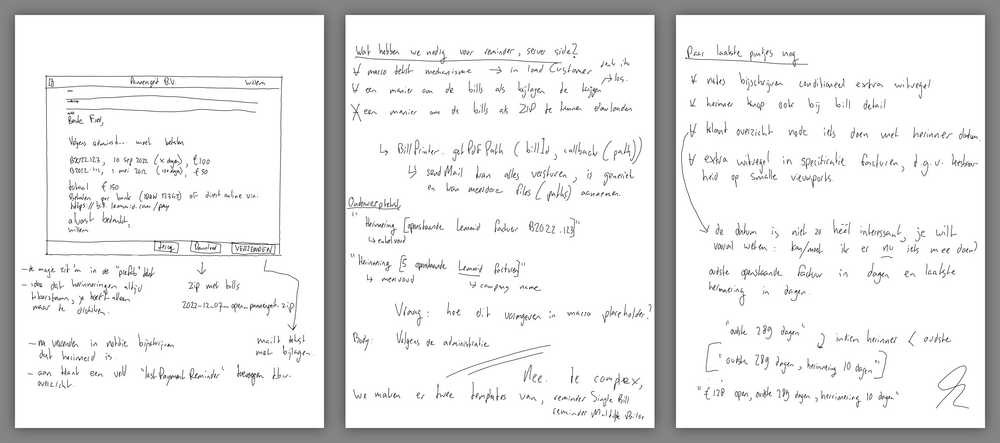 Pannengod B.V.
Willem
Beste Fret,
Volgens administ... moet betalen
B2022.123, 10 sep 2022 (x dagen), €100
B2022.111, 1 mei 2022 (100 dagen), €50
totaal €150
Betalen per bank (IBAN 12345) of direct online via:
https://bill.lemmid.com/pay
alvast bedankt,
willem
terug
Download
VERZENDEN
- de magie zit 'm in de "prefab" tekst
- idee dat herinneringen altijd
klaarstaan, je hoeft alleen
maar te clicken.
zip met bills
2022-12-07-open-pannengod.zip
- na verzenden in notitie bijschrijven
dat herinnerd is.
mailt tekst
met bijlagen.
- aan klant een veld "lastPaymentReminder" toevoegen t.b.v.
overzicht.
Wat hebben we nodig voor reminder, server side?
macro tekst mechanisme → in load Customer
een manier om de bills als bijlagen te krijgen
een manier om de bills als ZIP te kunnen downloaden
↳ BillPrinter.getPdfPath (billId, callback (path))
↳ sendMail kan alles versturen, is generiek
en kan meerdere files (paths) aannemen.
Onderwerptekst
"Herinnering [openstaande Lemmid factuur B2022.123]
↳ enkelvoud
"Herinnering [5 openstaande Lemmid facturen]"
↳ meervoud
↳ company name
Vraag: hoe dit vormgeven in macro placeholder?
Body: Volgens de administratie
Nee. te complex,
we maken er twee templates van, reminder Single Bill
reminder Multiple Bills
Paar laatste puntjes nog
notes bijschrijven conditioneel extra witregel
herinner knop ook bij bill detail
klant overzicht node iets doen met herinner datum.
extra witregel in specificatie facturen, t.g.v. leesbaar-
heid op smalle viewports.
de datum is niet zo héél interessant, je wilt
vooral weten: kan/moet ik er nu iets mee doen?
oudste openstaande factuur in dagen en laatste
herinnering in dagen.
"oudste 289 dagen"
indien herinner < oudste
["oudste 289 dagen, herinnering 10 dagen"]
"€128 open, oudste 289 dagen, herinnering 10 dagen"